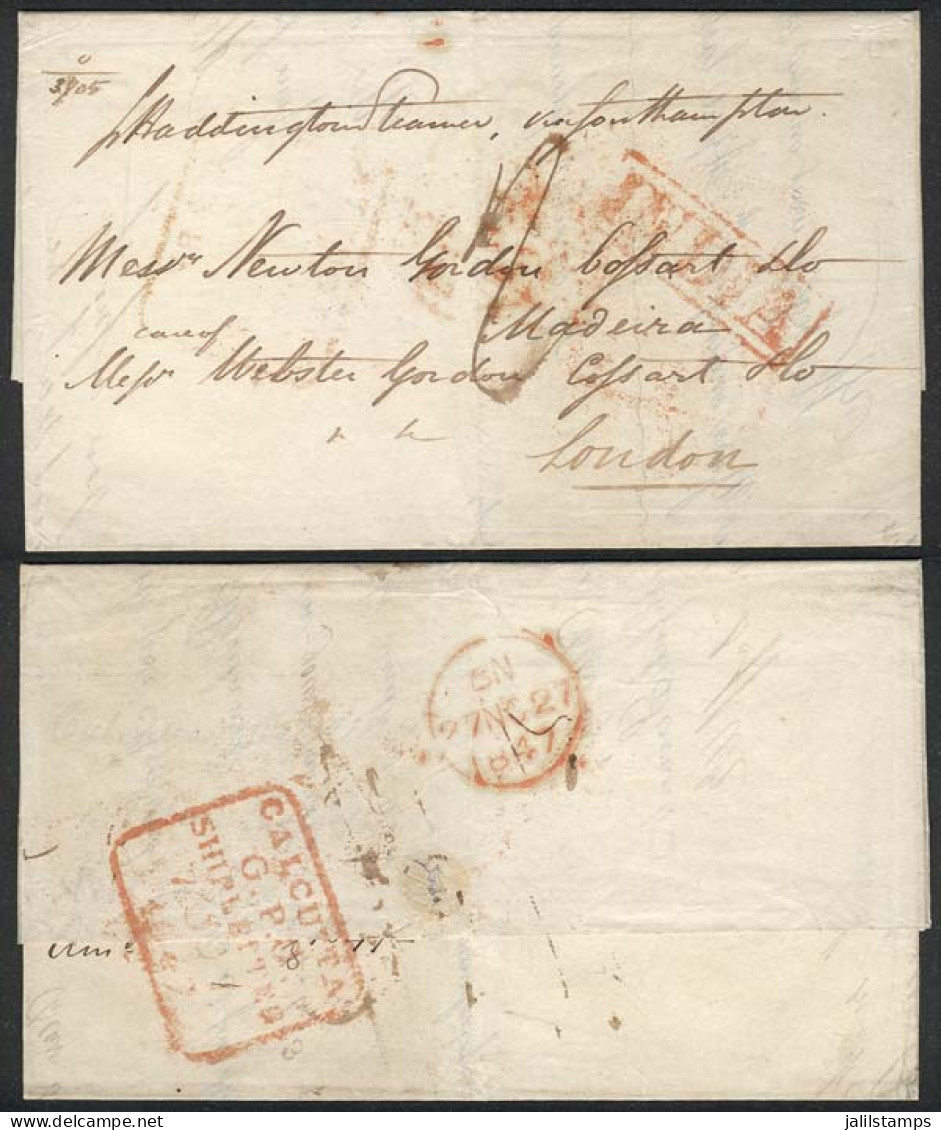 o
3805
p Haddington Steamer, via Southampton.
INDIA
Messrs Newton Gordon Cossart & Co
Madeira
care of
Messrs Webster Gordon Cossart & Co
London
5N
27NO27
1847
CALCUTTA
G.P.O.
SHIP LETTER
1847
jalilstamps